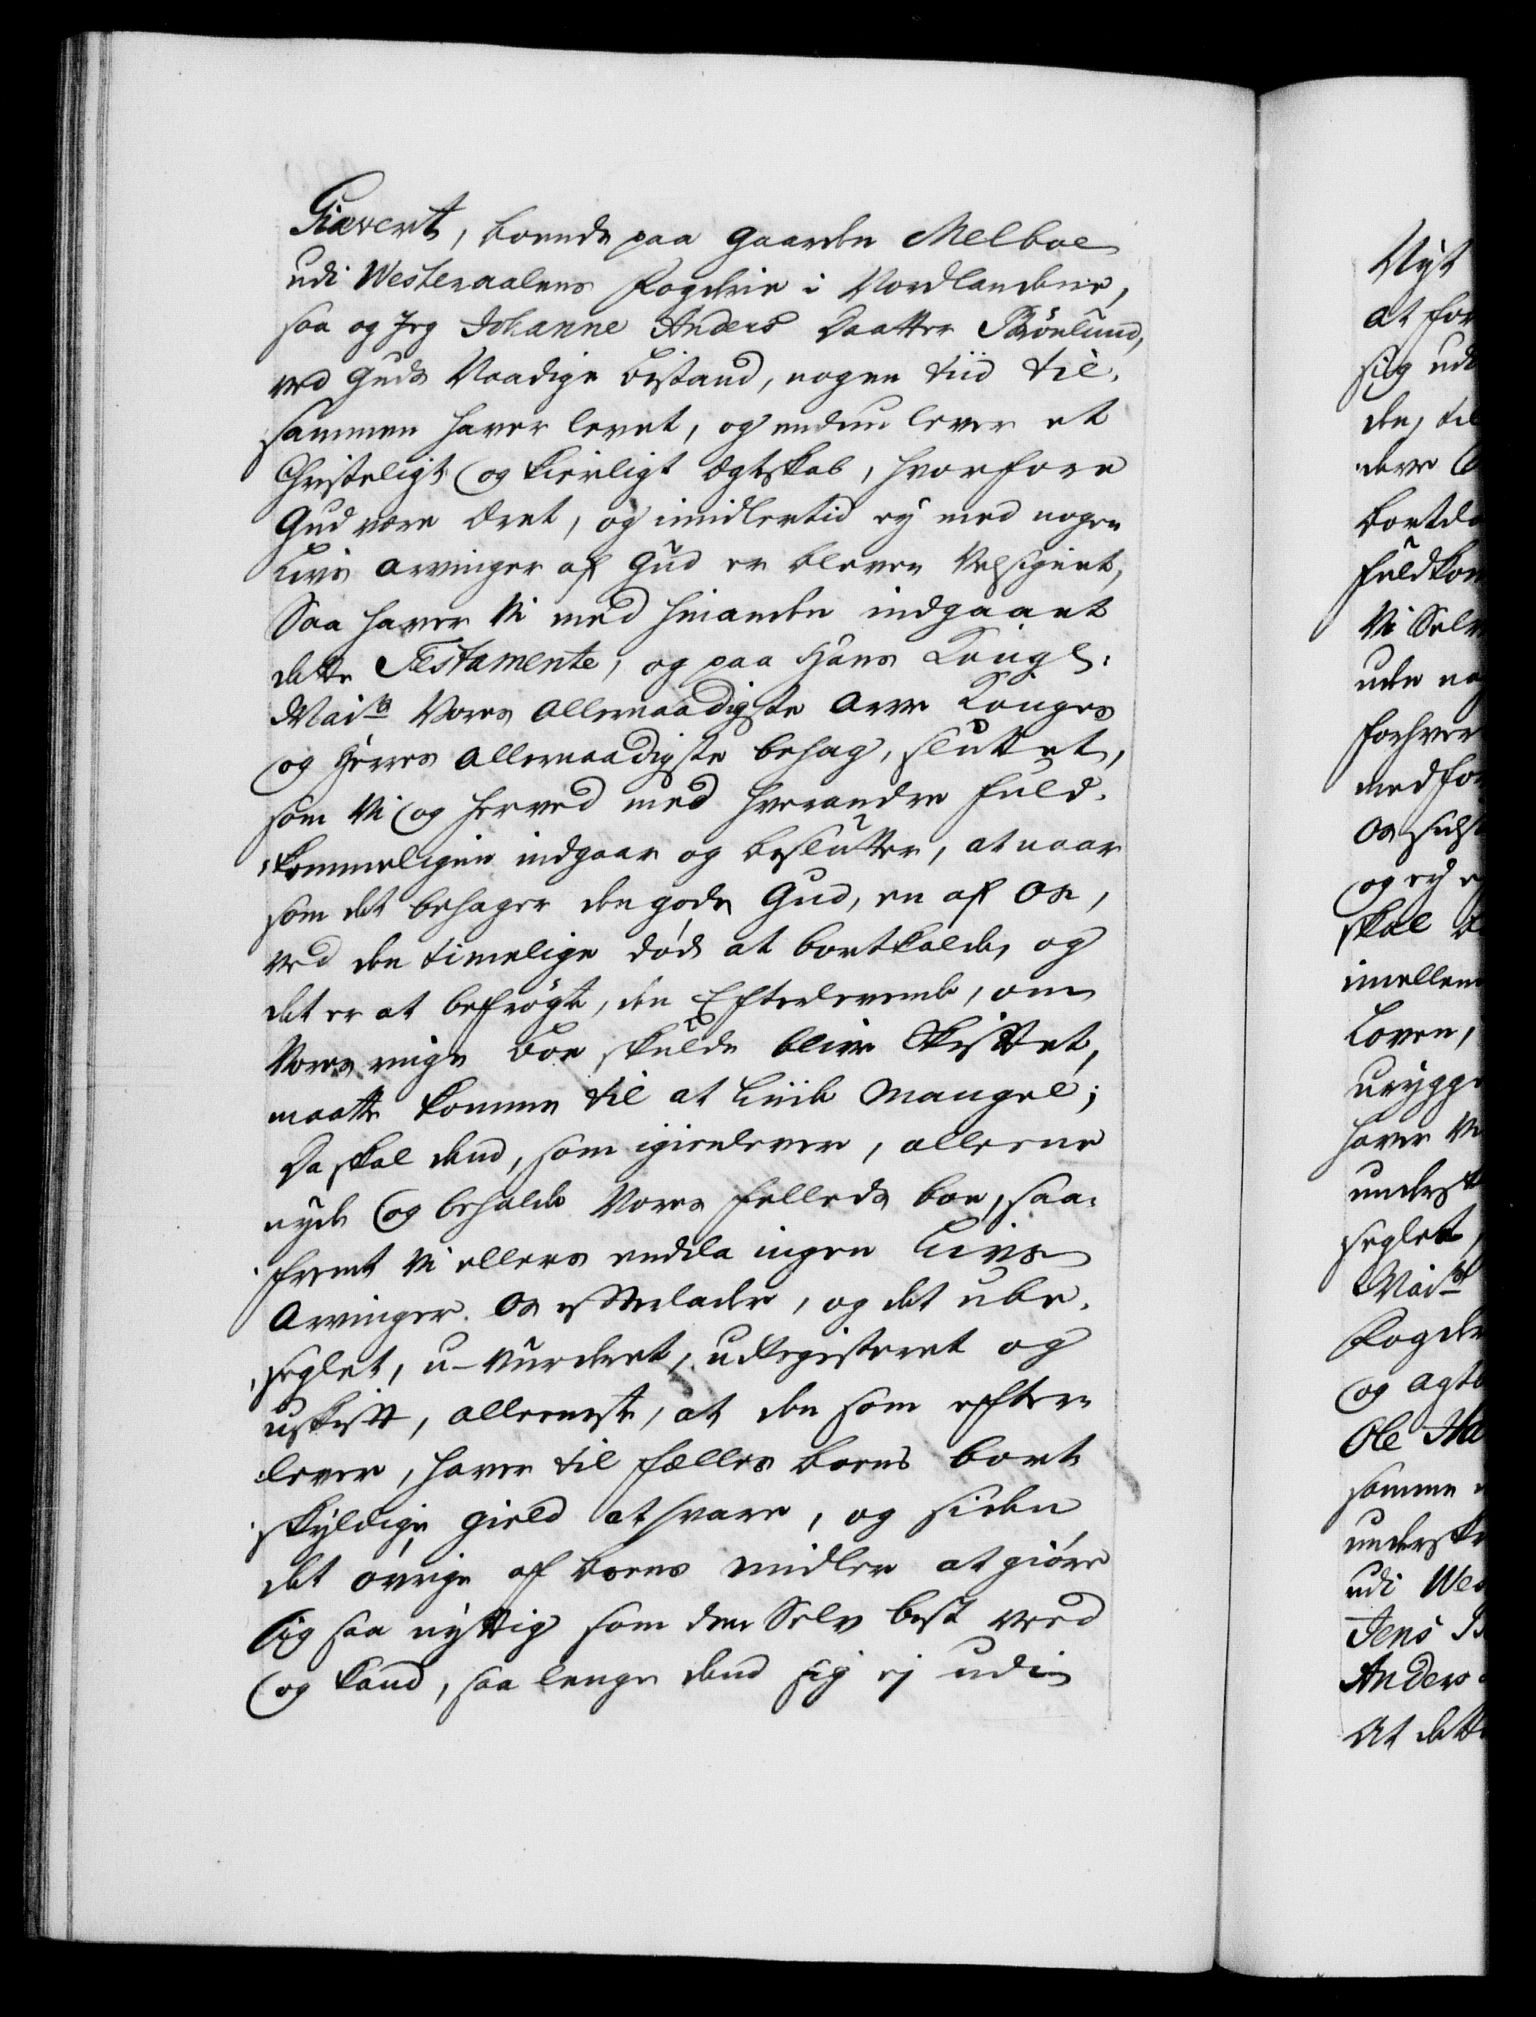 Giævert, boende paa Gaarden Melboe
udi Westeraalens Fogderie i Nordlandene,
saa og Jeg Johanne Anders Daatter Brönlund,
ved Guds Naadige bistand, nogen tiid til,
sammen haver levet, og endnu lever et
Christeligt og kierligt Egteskab, hvorfore
Gud være æret, og imidlertid ey med nogen
Livs arvinger af Gud er bleven Velsignet,
Saa haver Vi med hinanden indgaaet
dette Testamente, og paa Hans Kongl:
Mai:ts Vores allernaadigste Arve Konges
og Herres allernaadigste behag, sluttet,
som Vi og herved med hverandre fuld,
kommeligen indgaar og beslutter, at naar
som det behager den gode Gud, en af Os,
ved den timelige död at bortkalde, og
det er at befrögte, den Efterlevende, om
Vores ringe boe skulde blive Skiftet,
maatte komme til at liide Mangel;
Da skal dend, som igienlever, allene
nyde og beholde Vores fælleds boe, saa,
fremt Vi ellers endda ingen Livs
Arvinger Os efterlader, og det ube,
seglet, u-vurderet, uregisteret og
uskift, alleeneste, at den som efter
lever, haver til fælles boens bort
skyldige gield at svare, og siden
det övrige af boens midler at giöre
sig saa nyttig som den Selv best veed
og kand, saa lenge dend sig ej udi
Nyt
at for
sig udi
den, til
dere
bortdö
fuldkom
Vi Selv
uden no
forhver
med for
Os selv
og ey
skal
imellem
Loven,
urygge
haver Vi
underst
seglet,
Mai:ts
Fogder
og agt
Ole Ha
samme
underskr
udi Wes
Jens B
Anders
At dette